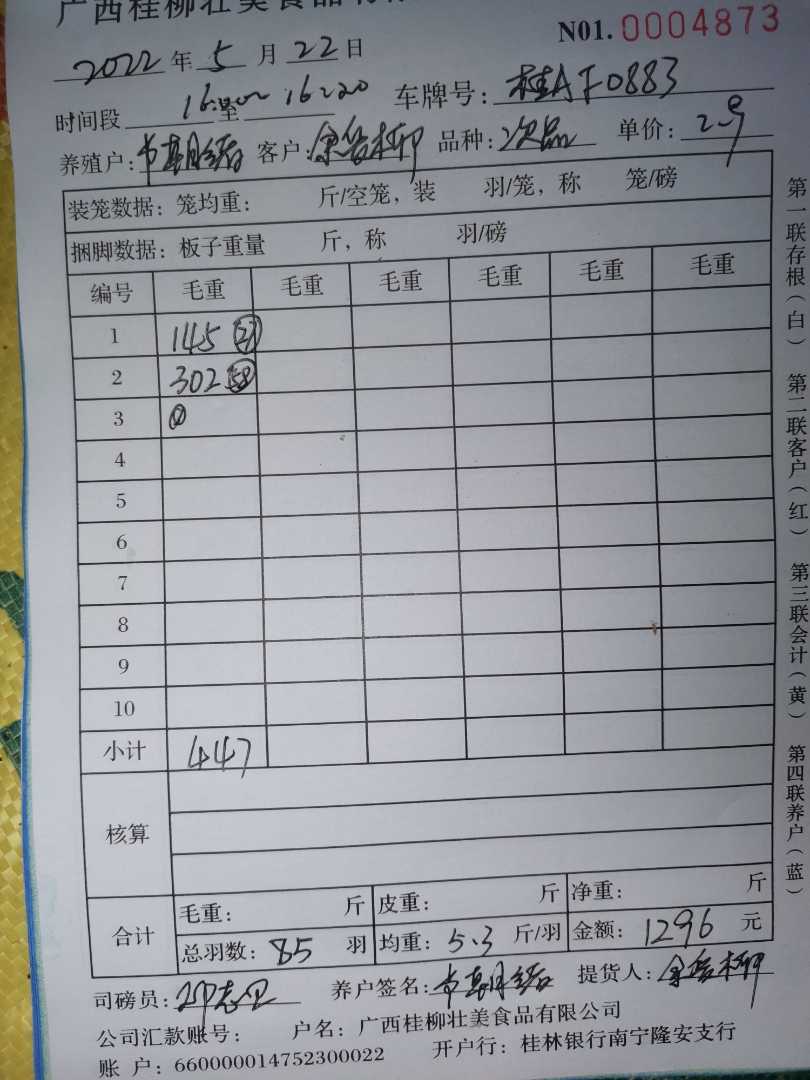 广西桂柳壮美食品有限
N01. 0004873
2022 年 5 月 22 日
时间段 16:00 至 16:20 车牌号: 桂AF0883
养殖户: 客户: 品种: 次品 单价: 2.9
装笼数据: 笼均重: 斤/空笼, 装 羽/笼, 称 笼/磅
捆脚数据: 板子重量 斤, 称 羽/磅
编号 毛重 毛重 毛重 毛重 毛重 毛重
1 145 27
2 302 58
3
4
5
6
7
8
9
10
小计 447
核算
合计 毛重: 斤 皮重: 斤 净重: 斤
总羽数: 85 羽 均重: 5.3 斤/羽 金额: 1296 元
司磅员: 养户签名: 提货人:
公司汇款账号: 户名: 广西桂柳壮美食品有限公司
账 户: 660000014752300022 开户行: 桂林银行南宁隆安支行
第一联存根(白) 第二联客户(红) 第三联会计(黄) 第四联养户(蓝)